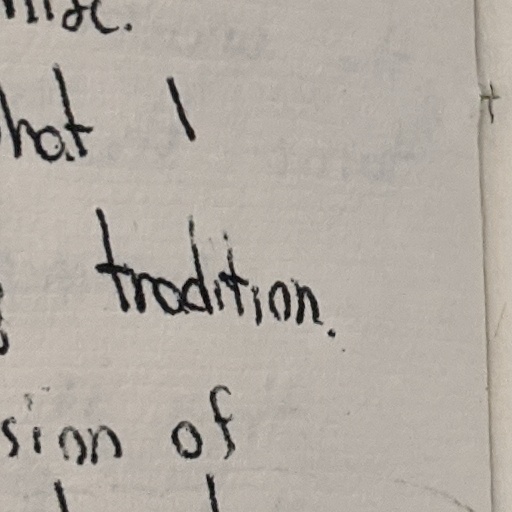 hat I
tradition.
sion of